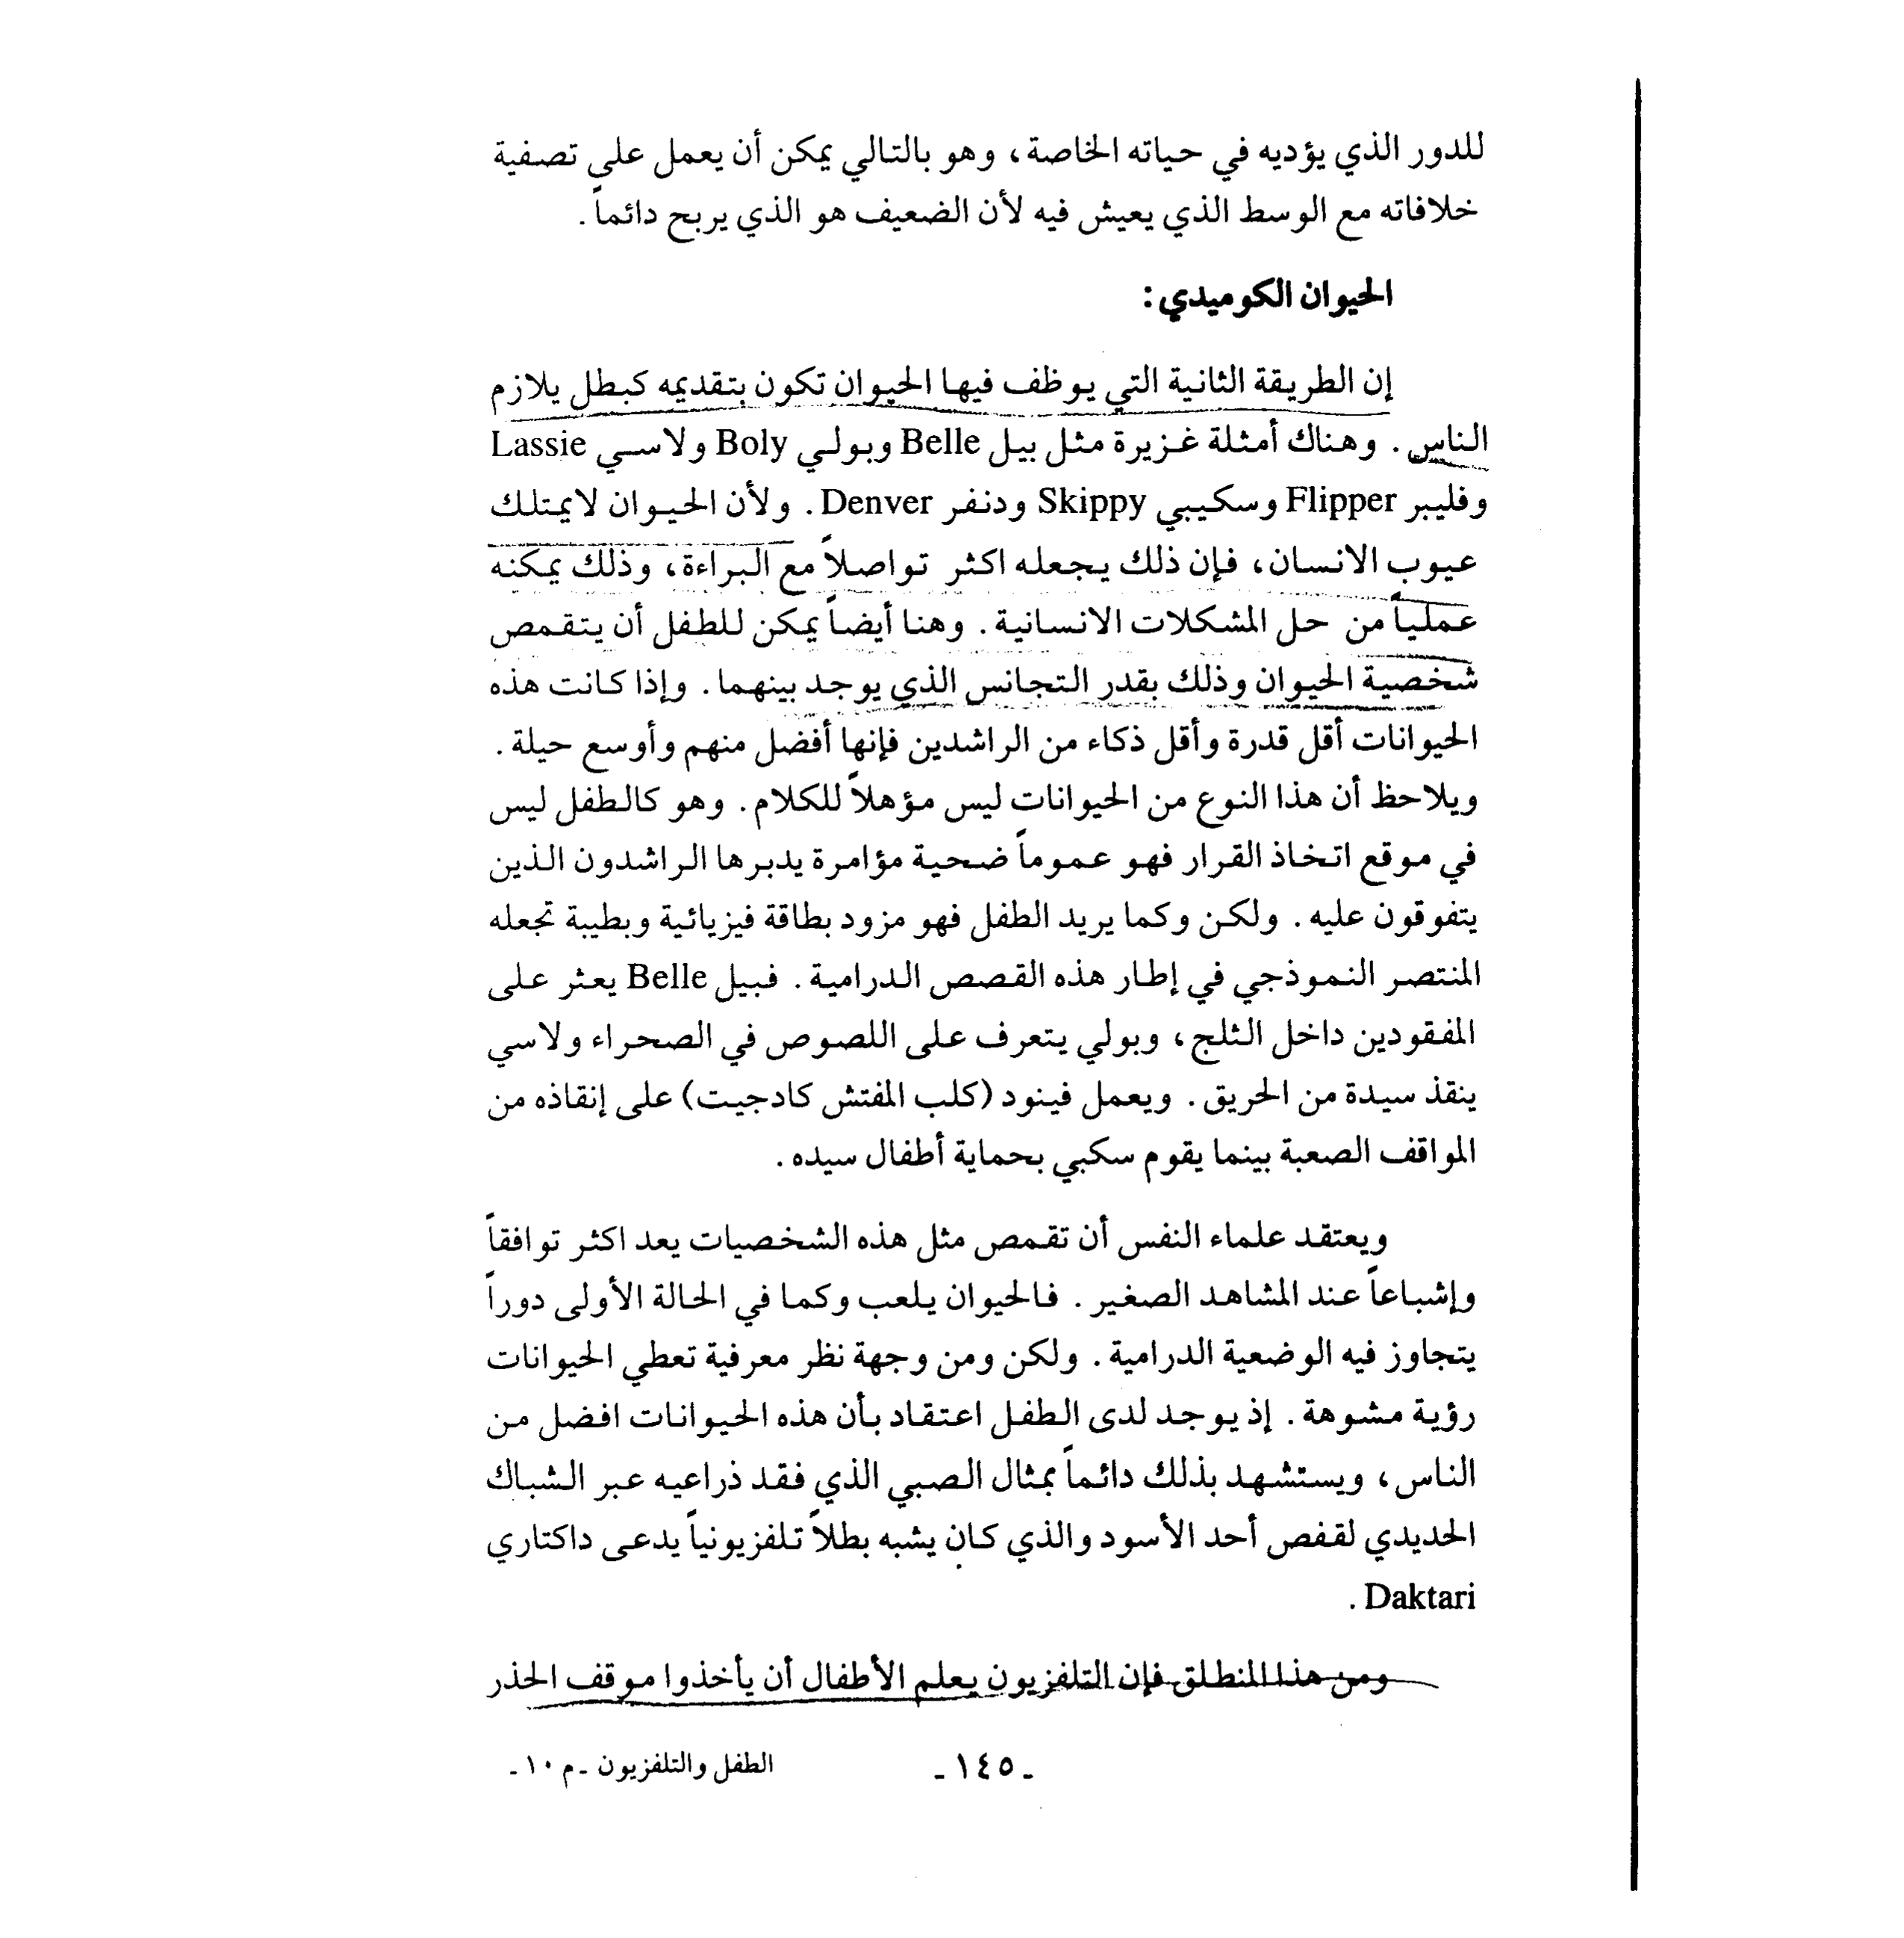 للدور الذي يؤديه في حياته الخاصة، وهو بالتالي يمكن أن يعمل على تصفية
خلافاته مع الوسط الذي يعيش فيه لأن الضعيف هو الذي يربح دائماً.
الحيوان الكوميدي:
إن الطريقة الثانية التي يوظف فيها الحيوان تكون بتقديمه كبطل يلازم
الناس. وهناك أمثلة غزيرة مثل بيل Belle وبولي Boly ولاسي Lassie
وفليبر Flipper وسكيبي Skippy ودنفر Denver. ولأن الحيوان لايمتلك
عيوب الانسان، فإن ذلك يجعله اكثر تواصلاً مع البراءة، وذلك يمكنه
عملياً من حل المشكلات الانسانية. وهنا أيضاً يمكن للطفل أن يتقمص
شخصية الحيوان وذلك بقدر التجانس الذي يوجد بينهما. وإذا كانت هذه
الحيوانات أقل قدرة وأقل ذكاء من الراشدين فإنها أفضل منهم وأوسع حيلة.
ويلاحظ أن هذا النوع من الحيوانات ليس مؤهلاً للكلام. وهو كالطفل ليس
في موقع اتخاذ القرار فهو عموماً ضحية مؤامرة يدبرها الراشدون الذين
يتفوقون عليه. ولكن وكما يريد الطفل فهو مزود بطاقة فيزيائية وبطيبة تجعله
المنتصر النموذجي في إطار هذه القصص الدرامية. فبيل Belle يعثر على
المفقودين داخل الثلج، وبولي يتعرف على اللصوص في الصحراء ولاسي
ينقذ سيدة من الحريق. ويعمل فينود (كلب المفتش كادجيت) على إنقاذه من
المواقف الصعبة بينما يقوم سكبي بحماية أطفال سيده.
ويعتقد علماء النفس أن تقمص مثل هذه الشخصيات يعد اكثر توافقاً
وإشباعاً عند المشاهد الصغير. فالحيوان يلعب وكما في الحالة الأولى دوراً
يتجاوز فيه الوضعية الدرامية. ولكن ومن وجهة نظر معرفية تعطي الحيوانات
رؤية مشوهة. إذ يوجد لدى الطفل اعتقاد بأن هذه الحيوانات افضل من
الناس، ويستشهد بذلك دائماً بمثال الصبي الذي فقد ذراعيه عبر الشباك
الحديدي لقفص أحد الأسود والذي كان يشبه بطلاً تلفزيونياً يدعى داكتاري
Daktari.
ومن هذا المنطلق فإن التلفزيون يعلم الأطفال أن يأخذوا موقف الحذر
ـ ١٤٥ ـ الطفل والتلفزيون ـ م ١٠ ـ